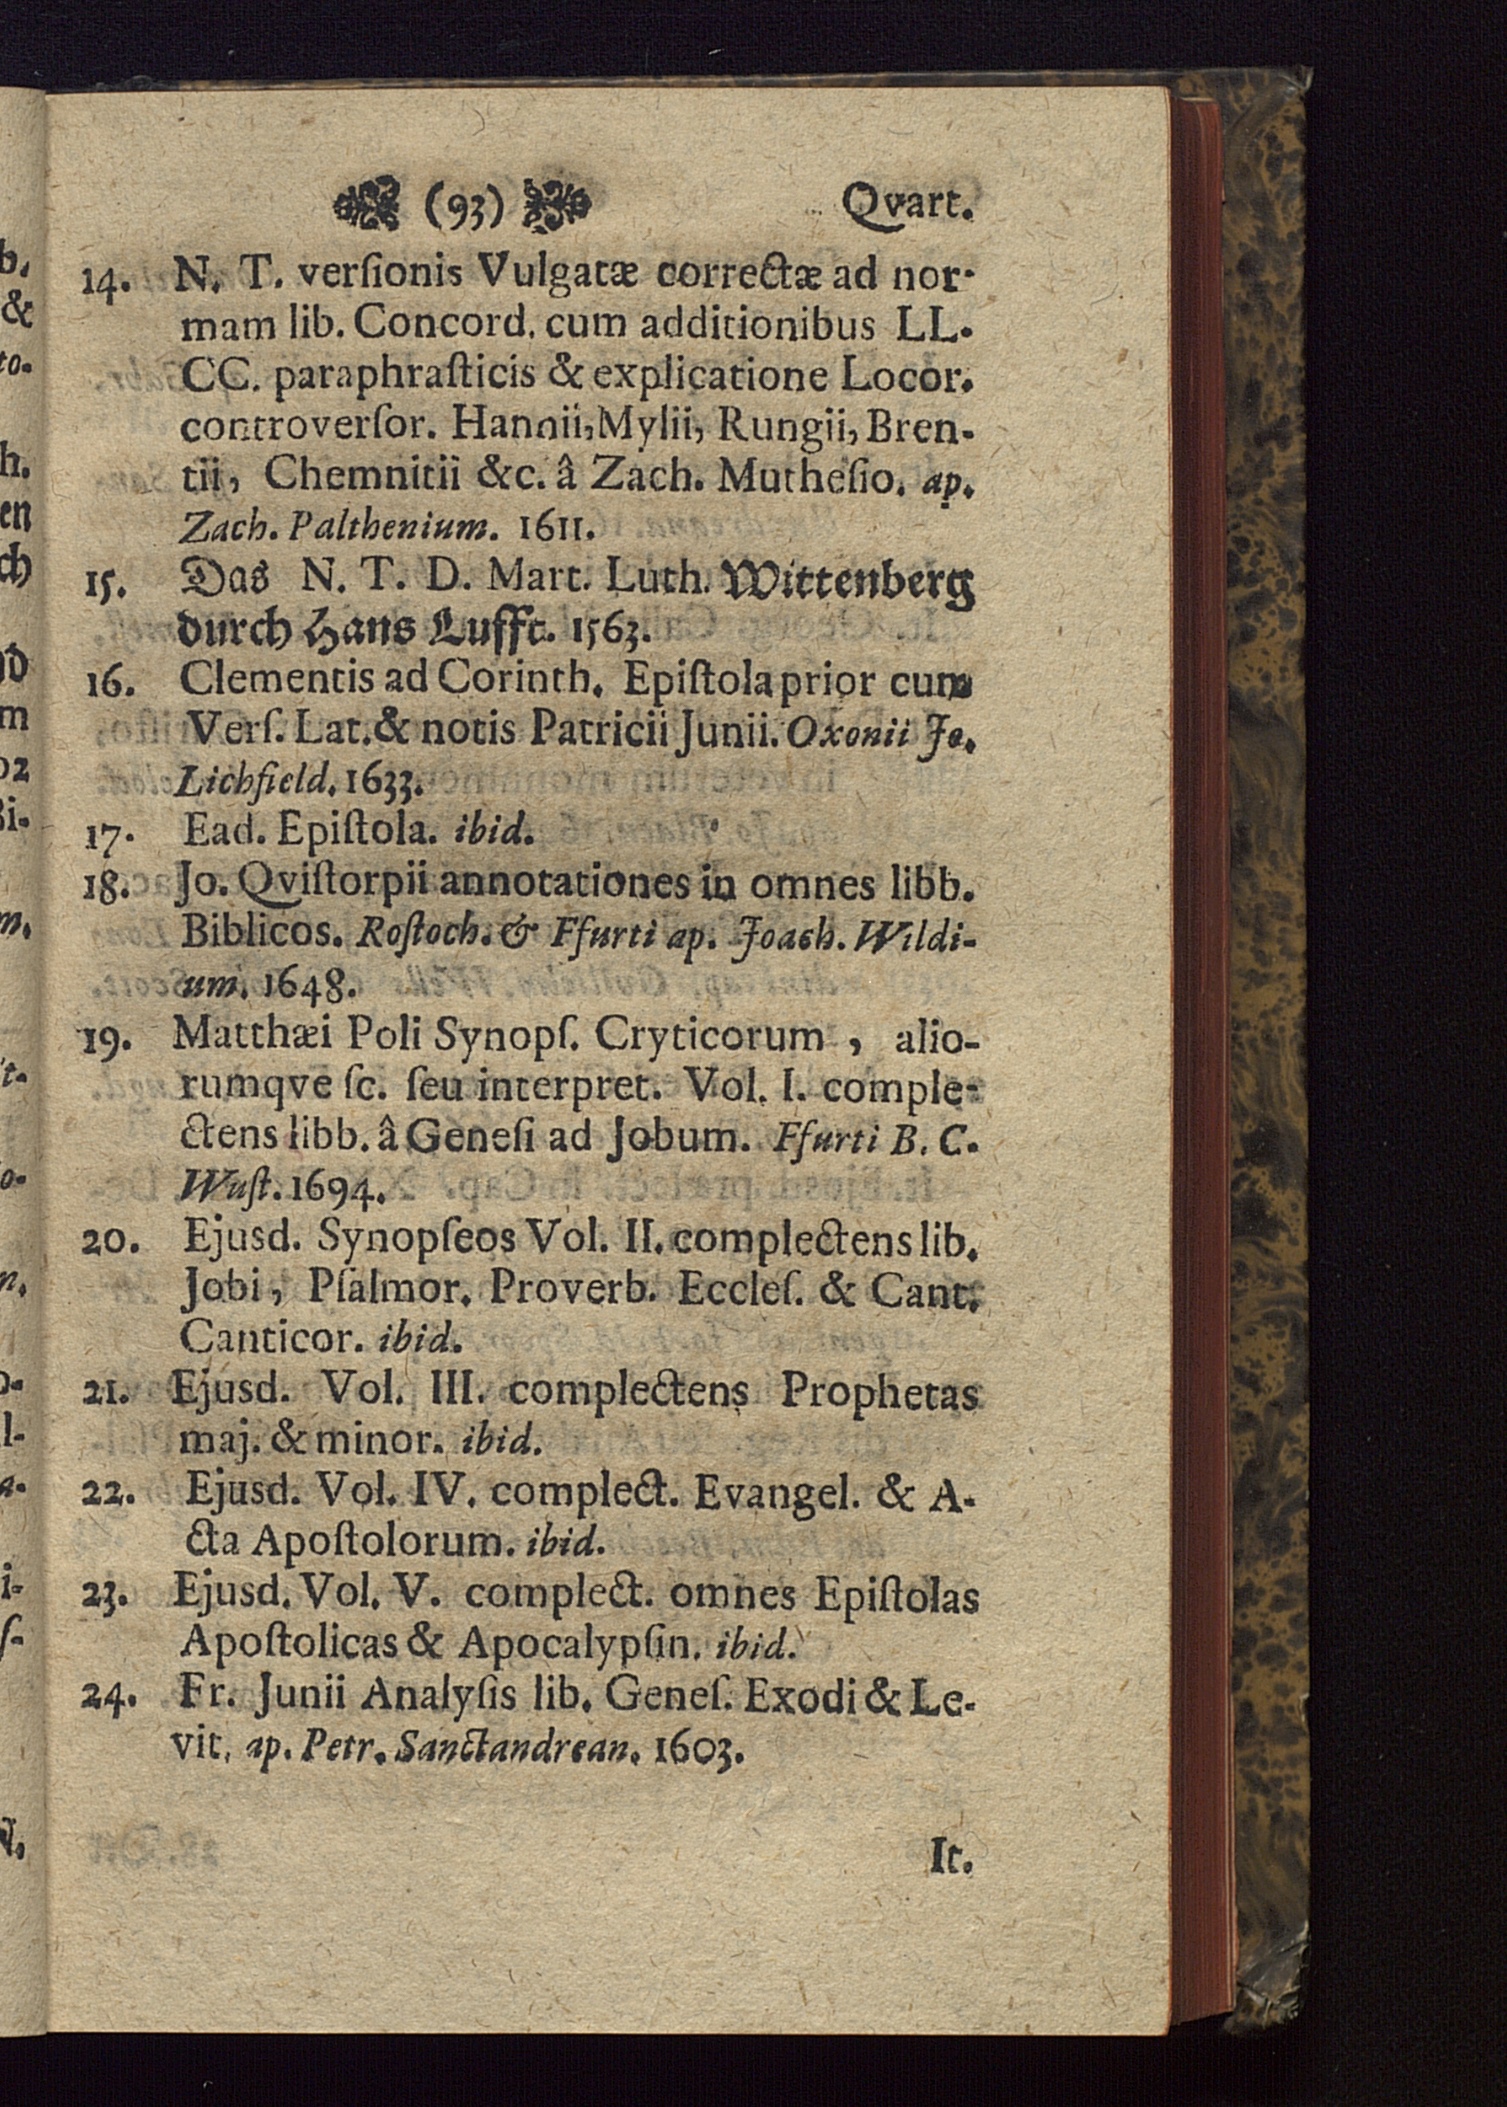 (93) Qvart.
14. N. T. verſionis Vulgatæ correctæ ad nor-
mam lib. Concord. cum additionibus LL.
CC. paraphraſticis & explicatione Locor.
controverſor. Hannii, Mylii, Rungii, Bren-
tii, Chemnitii &c. â Zach. Mutheſio. ap.
Zach. Palthenium. 1611.
15. Das N. T. D. Mart. Luth. Wittenberg
durch Hans Lufft. 1563.
16. Clementis ad Corinth. Epiſtola prior cum
Verſ. Lat. & notis Patricii Junii. Oxonii Jo.
Lichfield. 1633.
17. Ead. Epiſtola. ibid.
18. Jo. Qviſtorpii annotationes in omnes libb.
Biblicos. Roſtoch. & Ffurti ap. Joach. Wildi-
um. 1648.
19. Matthæi Poli Synopſ. Cryticorum, alio-
rumqve ſc. ſeu interpret. Vol. I. comple-
ctens libb. â Geneſi ad Jobum. Ffurti B. C.
Wuſt. 1694.
20. Ejusd. Synopſeos Vol. II. complectens lib.
Jobi, Pſalmor. Proverb. Eccleſ. & Cant.
Canticor. ibid.
21. Ejusd. Vol. III. complectens Prophetas
maj. & minor. ibid.
22. Ejusd. Vol. IV. complect. Evangel. & A-
cta Apoſtolorum. ibid.
23. Ejusd. Vol. V. complect. omnes Epiſtolas
Apoſtolicas & Apocalypſin. ibid.
24. Fr. Junii Analyſis lib. Geneſ. Exodi & Le-
vit. ap. Petr. Sanctandrean. 1603.
It.